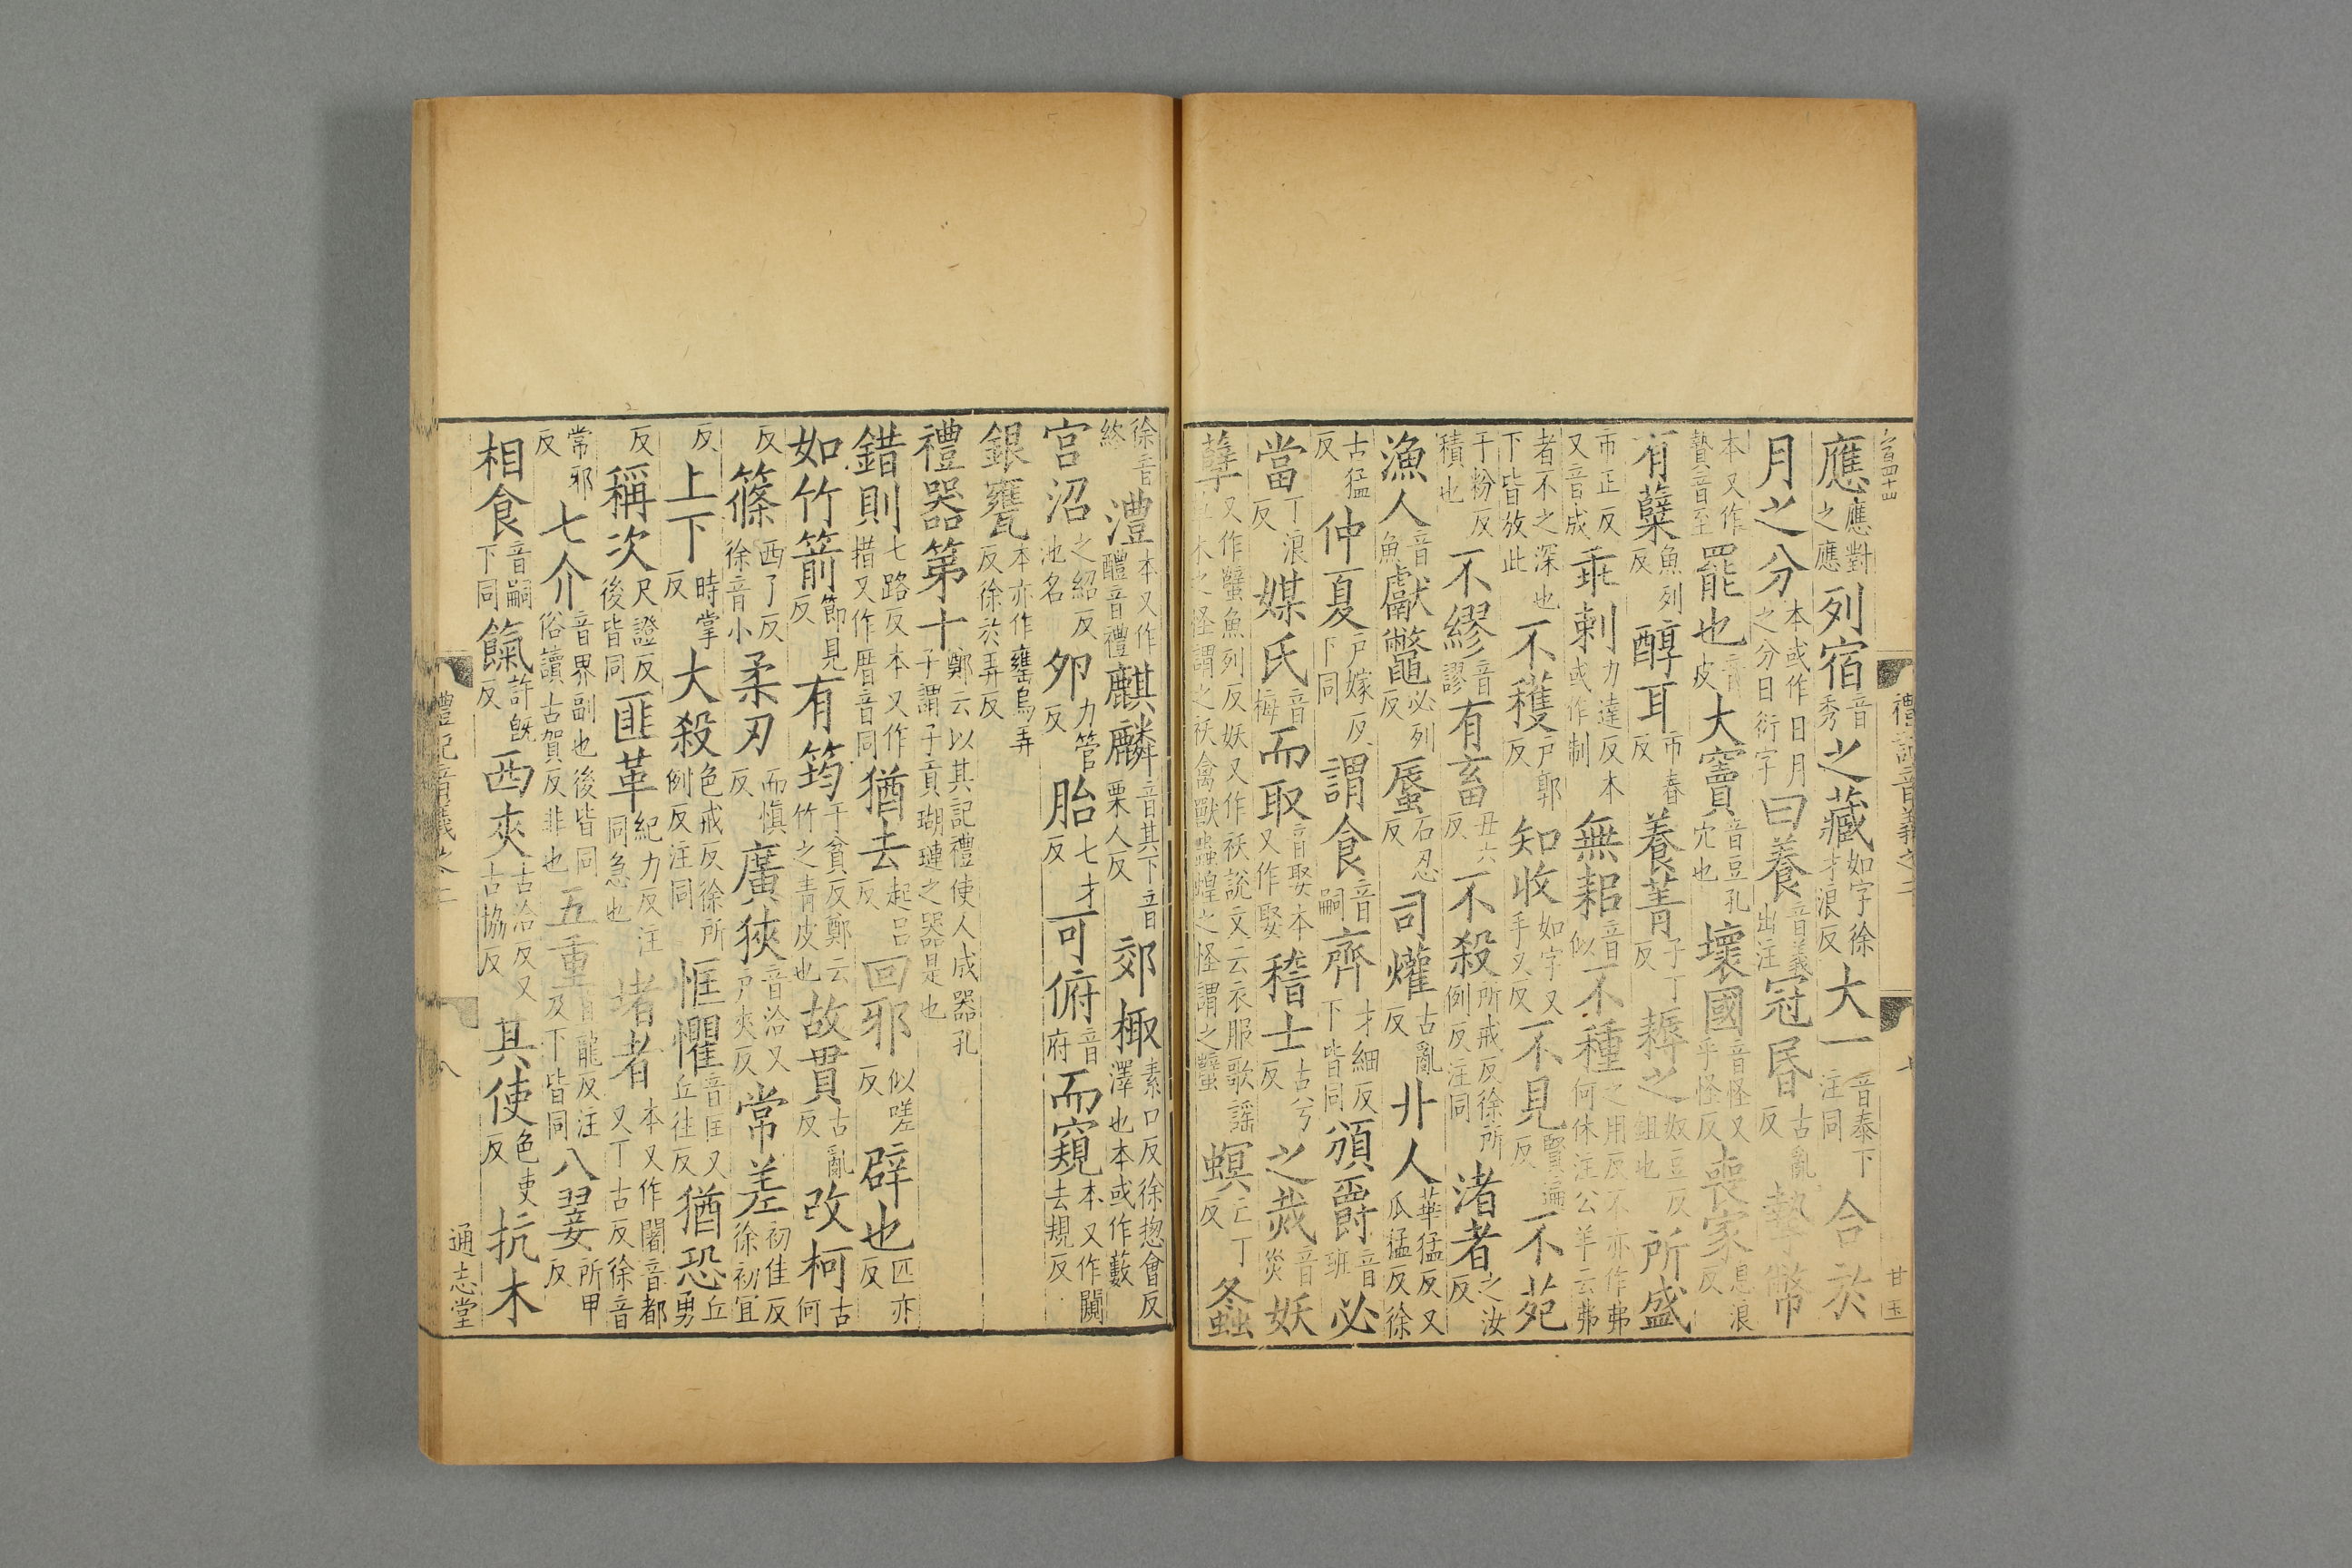 應應對之應列宿音秀之藏如字徐才浪反大一音泰下注同合於
月之分本或作日月之分日衍字曰養音義出注冠昬古亂反摯幣
本又作贄音至罷也音皮大竇音豆孔穴也壞國音怪又乎怪反喪家息浪反
有蘖魚列反醇耳市春反養菁子丁反耨之奴豆反鉏也所盛
市正反又音成乖剌力達反本或作制無耜音似不種之用反不亦作弗何休注公羊云弗
者不之深也下皆放此不穫戶郭反知收如字又手又反不見賢遍反不苑
于粉反積也不繆音謬有畜丑六反不殺所戒反徐所例反注同渚者之汝反
漁人音魚獻鼈必列反蜃石忍反司爟古亂反卝人華猛反又瓜猛反徐
古猛反仲夏戶嫁反下同謂食音嗣齊才細反下皆同頒爵音班必
當丁浪反媒氏音梅而取音娶本又作娶稽士古兮反之烖音災妖
孽又作蠥魚列反妖又作祅說文云衣服歌謠草木之怪謂之祅禽獸蟲蝗之怪謂之蠥螟亡丁反螽
禮記音義之二
甘玉
徐音終澧本又作醴音禮麒麟音其下音栗人反郊棷素口反徐揔會反澤也本或作藪
宮沼之紹反池名夘力管反胎七才反可俯音府而窺本又作闚去規反
銀甕本亦作罋烏弄反徐於弄反
禮器第十鄭云以其記禮使人成器孔子謂子貢瑚璉之器是也
錯則七路反本又作措又作厝音同猶去起呂反回邪似嗟反辟也匹亦反
如竹箭節見反有筠于貧反鄭云竹之青皮也故貫古亂反改柯古何
反篠西了反徐音小柔刃而愼反廣狹音洽又戶夾反常差初佳反徐初宜
反上下時掌反大殺色戒反徐所例反注同恇懼音匡又丘往反猶恐丘勇
反稱次尺證反後皆同匪革紀力反注同急也堵者本又作闍音都又丁古反徐音
常邪反七介音界副也後皆同俗讀古賀反非也五重直龍反注及下皆同八翣所甲反
相食音嗣下同餼許旣反西夾古洽反又古協反其使色吏反抗木
禮記音義之二
八
通志堂